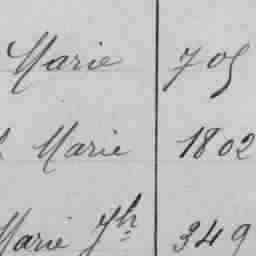 Marie 705
Marie 1802
Marie Jh 349